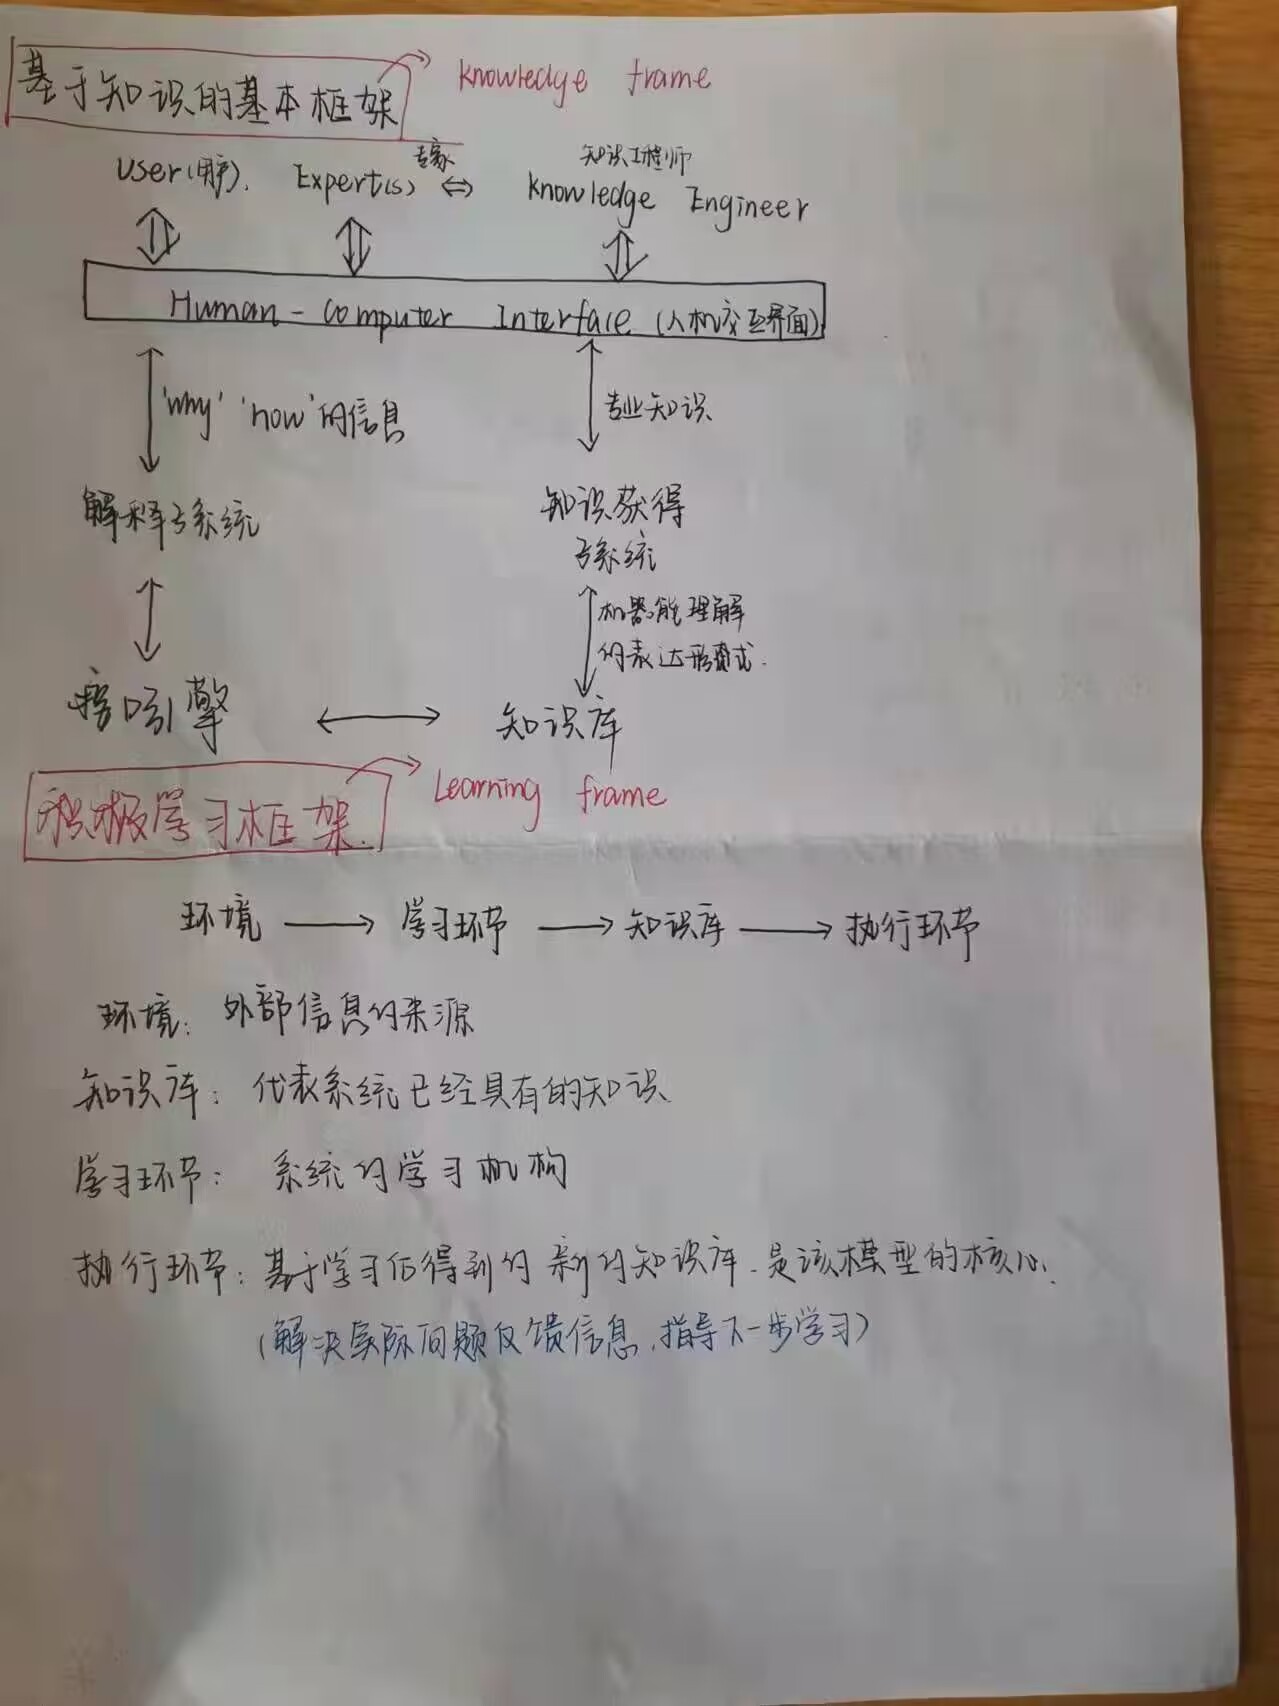 基于知识的基本框架 knowledge frame
专家 知识工程师
User(用户). Expert(s) ⇔ knowledge Engineer
Human-Computer Interface (人机交互界面)
'why' 'how'的信息 专业知识
解释子系统 知识获得
子系统
机器能理解
的表达形式.
引擎 ↔ 知识库
积极学习框架. Learning frame
环境 → 学习环节 → 知识库 → 执行环节
环境: 外部信息的来源
知识库: 代表系统已经具有的知识
学习环节: 系统的学习机构
执行环节: 基于学习后得到的新的知识库.是该模型的核心.
(解决实际问题反馈信息,指导下一步学习)